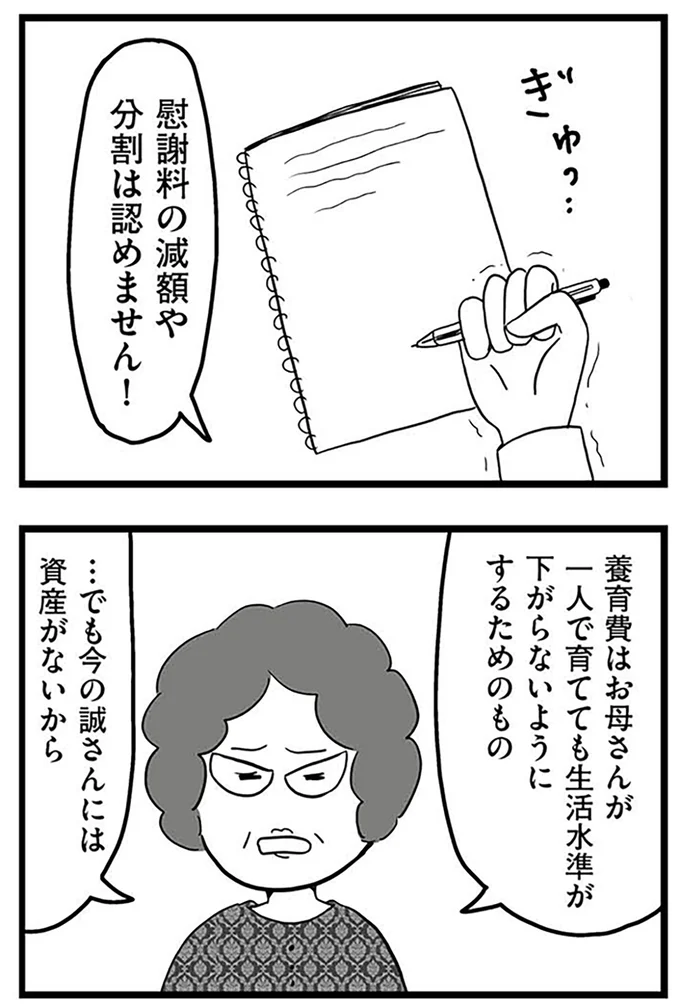 ぎゅっ…
慰謝料の減額や
分割は認めません！
養育費はお母さんが
一人で育てても生活水準が
下がらないように
するためのもの
…でも今の誠さんには
資産がないから